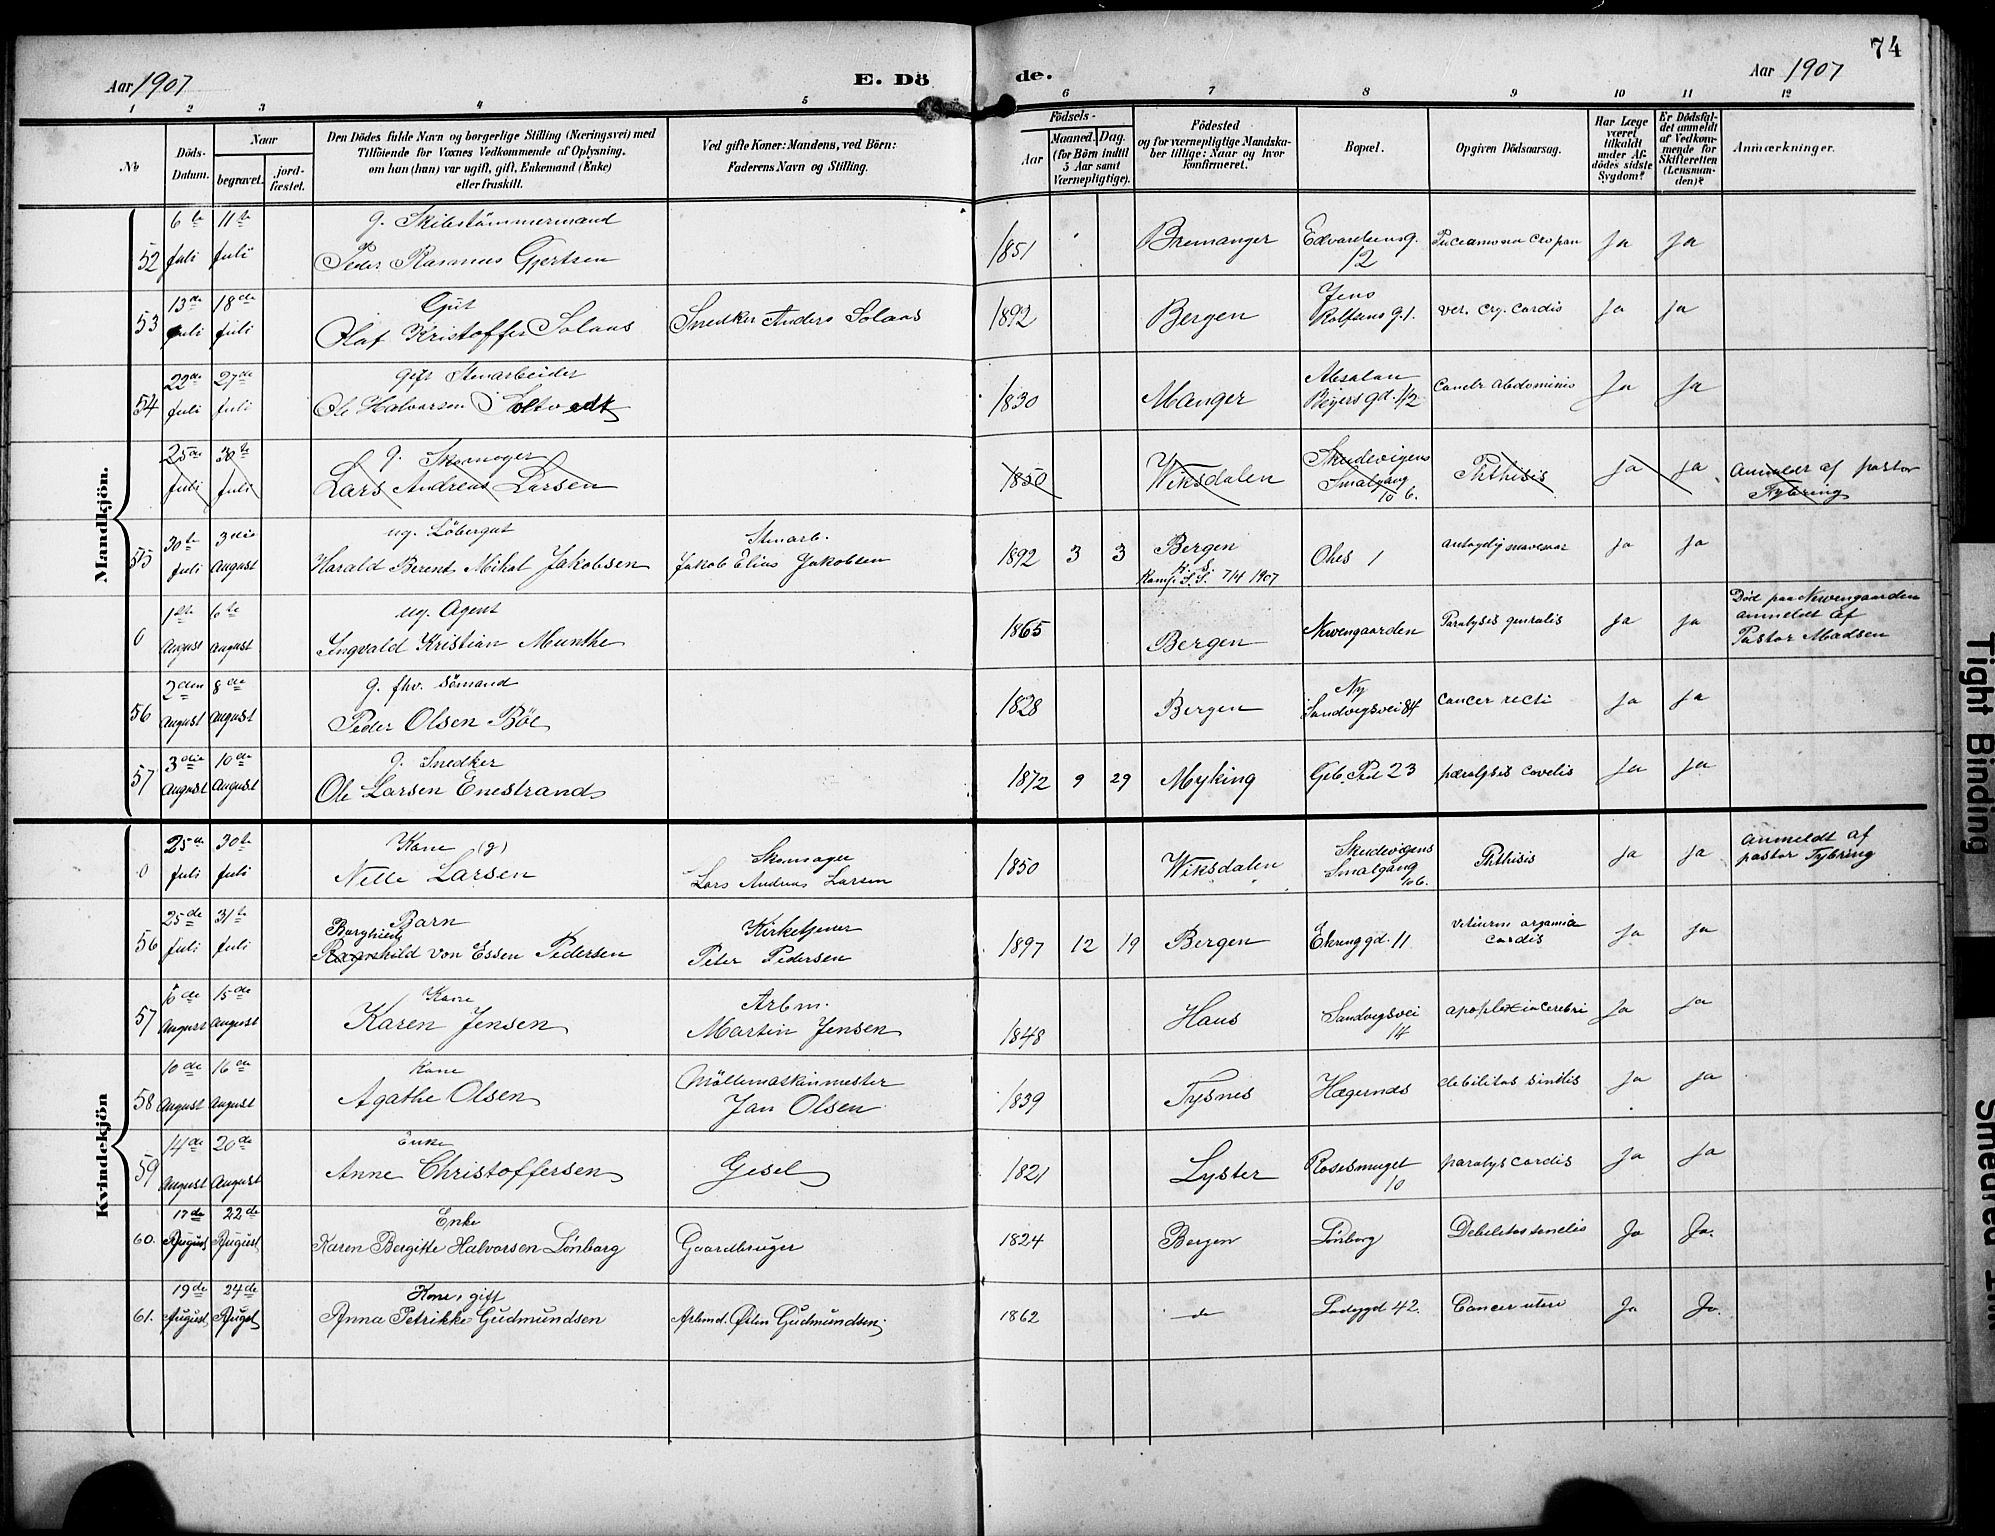 74
Aar 1907
E. Dö
de.
Aar 1907
1 2 3 4 5 6 7 8 9 10 11 12
No
Döds-
Datum.
Naar
begravet.
jord-
fæstet.
Den Dödes fulde Navn og borgerlige Stilling (Næringsvei) med
Tilföiende for Voxnes Vedkommende af Oplysning,
om han (hun) var ugift, gift, Enkemand (Enke)
eller fraskilt.
Ved gifte Koner: Mandens, ved Börn:
Faderens Navn og Stilling.
Födsels-
Aar
Maaned. Dag.
(for Börn indtil
5 Aar samt
Værnepligtige).
Födested
og for værnepligtige Mandska-
ber tillige: Naar og hvor
konfirmeret.
Bopæl.
Opgiven Dödsaarsag.
Har Læge
været
tilkaldt
under Af-
dödes sidste
Sygdom?
Er Dödsfal-
det anmeldt
af Vedkom-
mende for
Skifteretten
(Lensman-
den)?
Anmærkninger.
Mandkjön.
52 6te Juli 11te Juli
g. Skibstömmermand
Peder Rasmus Gjertsen
1851 Bremanger
12
Ja Ja
53 13de Juli 18de Juli
Gut
Olaf Kristoffer Solaas
Snedker Anders Solaas
1892 Bergen
Jens
Rolfsens g. 1.
ver. org. cordis Ja Ja
54 22de Juli 27de Juli
gift Stenarbeider
Ole Halvorsen Soltvedt
1830 Manger
Absalon
Beyers gd. 1/2
Cancer abdominis Ja Ja
25de Juli 30te Juli
g. Skomager
Lars Andreas Larsen
1850 Wiksdalen
Skudevigens
Smalgang
10 6.
Phthisis Ja Ja
Anmeldt af pastor
Fybring
55 30te Juli 3die August
ug. Löbergut
Harald Berent Mikal Jakobsen
Stenarb.
Jakob Elius Jakobsen
1892 3 3 Bergen
7/4 1907
1
Ja Ja
0 1ste August 6te August
ug. Agent
Ingvald Kristian Munthe
1865 Bergen Nevengaarden
Paralysis genralis Ja Ja
Död paa Nevengaarden
anmeldt af
Pastor Madsen
56 2den August 8de August
g. fhv. Sömand
Peder Olsen Böe
1828 Bergen
Ny
Sandvigsvei 84
Cancer recti Ja Ja
57 3die August 10de August
g. Snedker
Ole Larsen Enestrand
1872 9 29 Myking
23
Ja Ja
Kvindekjön
0 25de Juli 30te Juli
Kone (g)
Nille Larsen
Skomager
Lars Andreas Larsen
1850 Wiksdalen
Skudevigens
Smalgang
10 6.
Phthisis Ja Ja
Anmeldt af
pastor Fybring
56 25de Juli 31te Juli
Barn
Borghild
Ragnhild von Essen Pedersen
Kirketjener
Peter Pedersen
1897 12 19 Bergen
gd. 11
vitium organica
cordis
Ja Ja
57 6de August 15de August
Kone
Karen Jensen
Arbm.
Martin Jensen
1848 Haus
Sandvigsvei
14
apoplexia cerebri Ja Ja
58 10de August 16de August
Kone
Agathe Olsen
Möllemaskinmester
Jan Olsen
1839 Tysnes Hægernes
debilitas sinilis Ja Ja
59 14de August 20de August
Enke
Anne Christoffersen
Gesel
1821 Lyster
Rosesmuget
10
paralys cordis Ja Ja
60. 17de August 22de August
Enke
Karen Bergitte Halvorsen Lönborg
Gaardbruger
1824 Bergen Lönborg
Debilitas senelis Ja Ja.
61. 19de August 24de August
Kone, gift
Anna Petrikke Gudmundsen
Arbmd. Østen Gudmundsen.
1862 do
Ladegd 42.
Cancer uteri Ja Ja.
Tight Binding
Smeared Ink